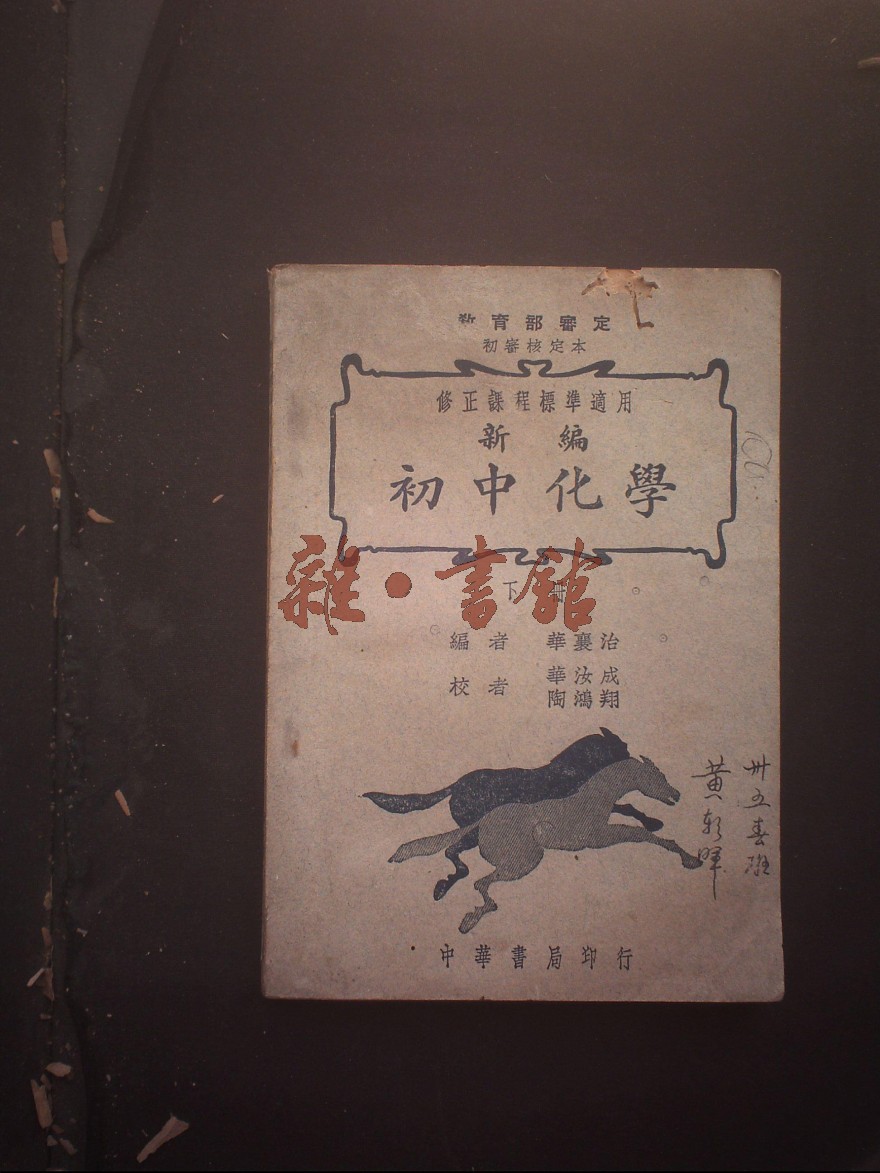 教育部審定
初審核定本
修正課程標準適用
新編
初中化學
下冊
雜·書館
編者 華襄治
校者 華汝成
陶鴻翔
卅五春
黃
中華書局印行